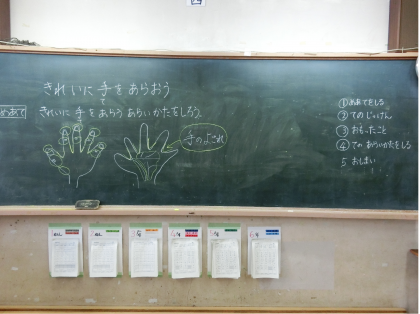 きれいに手をあらおう
て
めあて きれいに手をあらうあらいかたをしろう。
手のよごれ
①めあてをしる
②てのじっけん
③おもったこと
④てのあらいかたをしる
5 おしまい